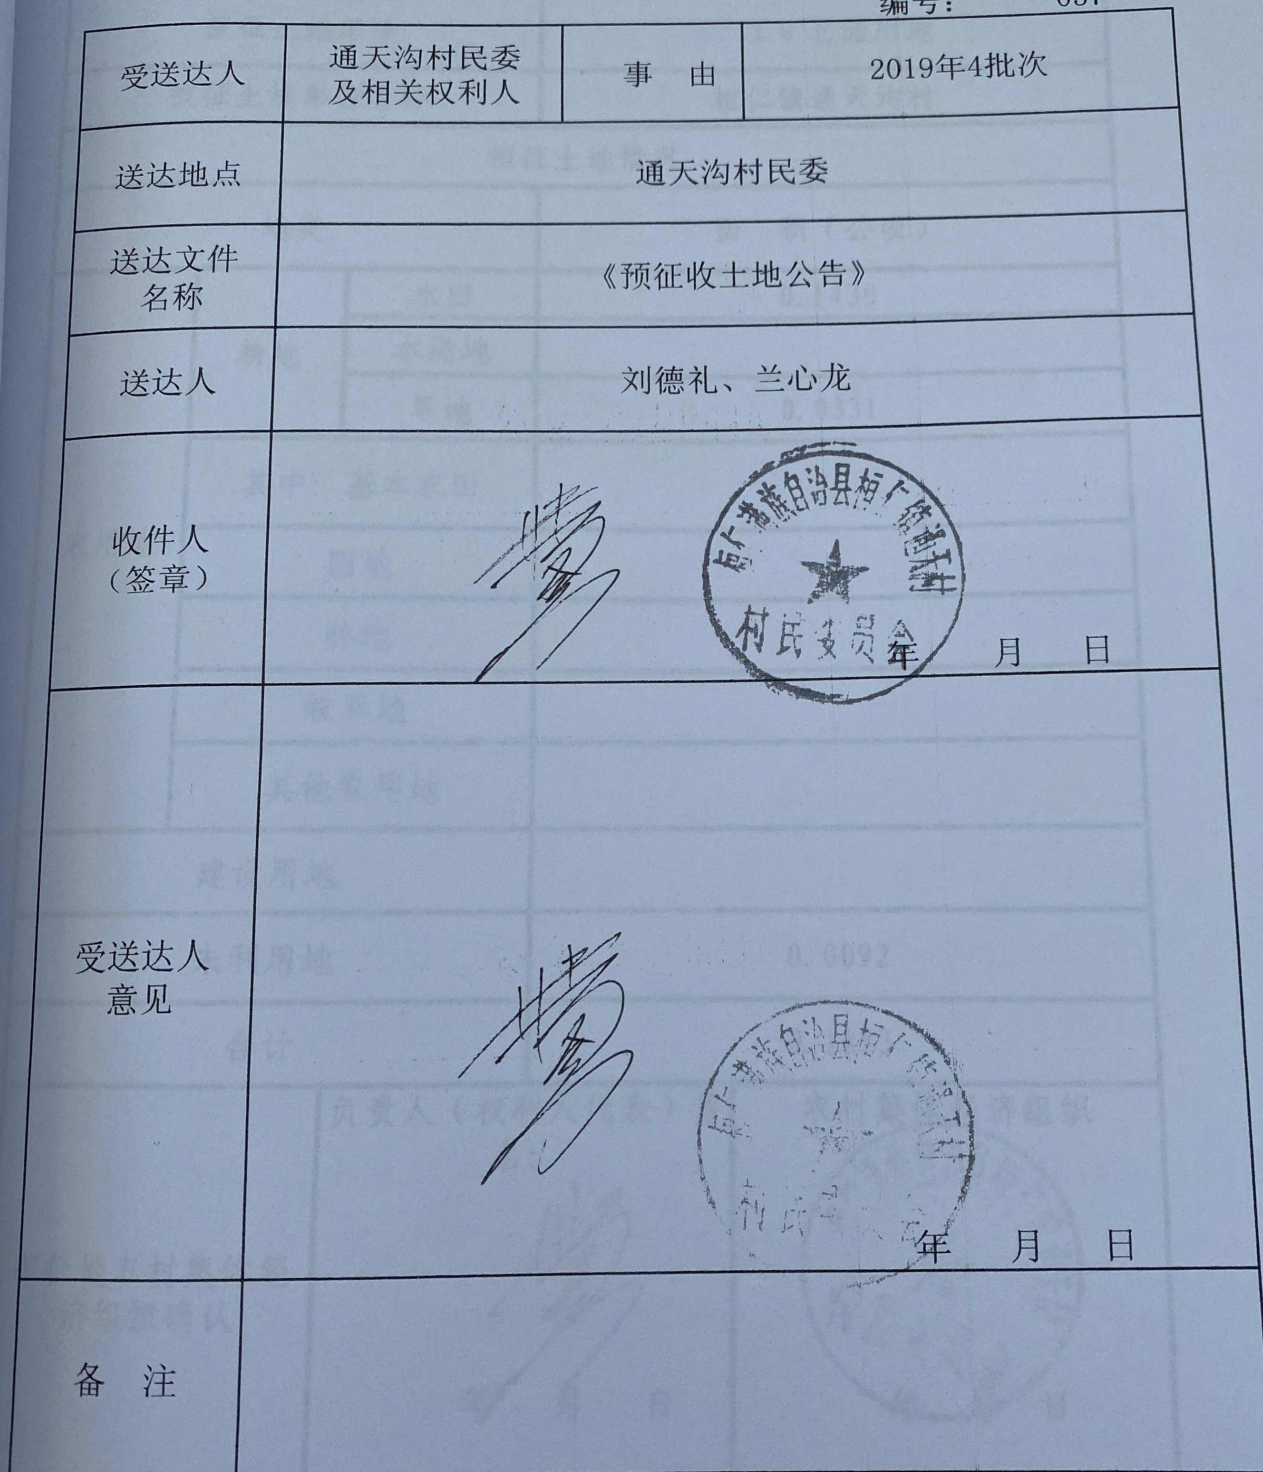 编号：
受送达人
通天沟村民委
及相关权利人
事 由
2019年4批次
送达地点
通天沟村民委
送达文件
名称
《预征收土地公告》
送达人
刘德礼、兰心龙
收件人
（签章）
满族自治县桓仁镇通天村
村民委员会
年 月 日
受送达人
意见
满族自治县桓仁镇
村民
年 月 日
备 注
0.0092